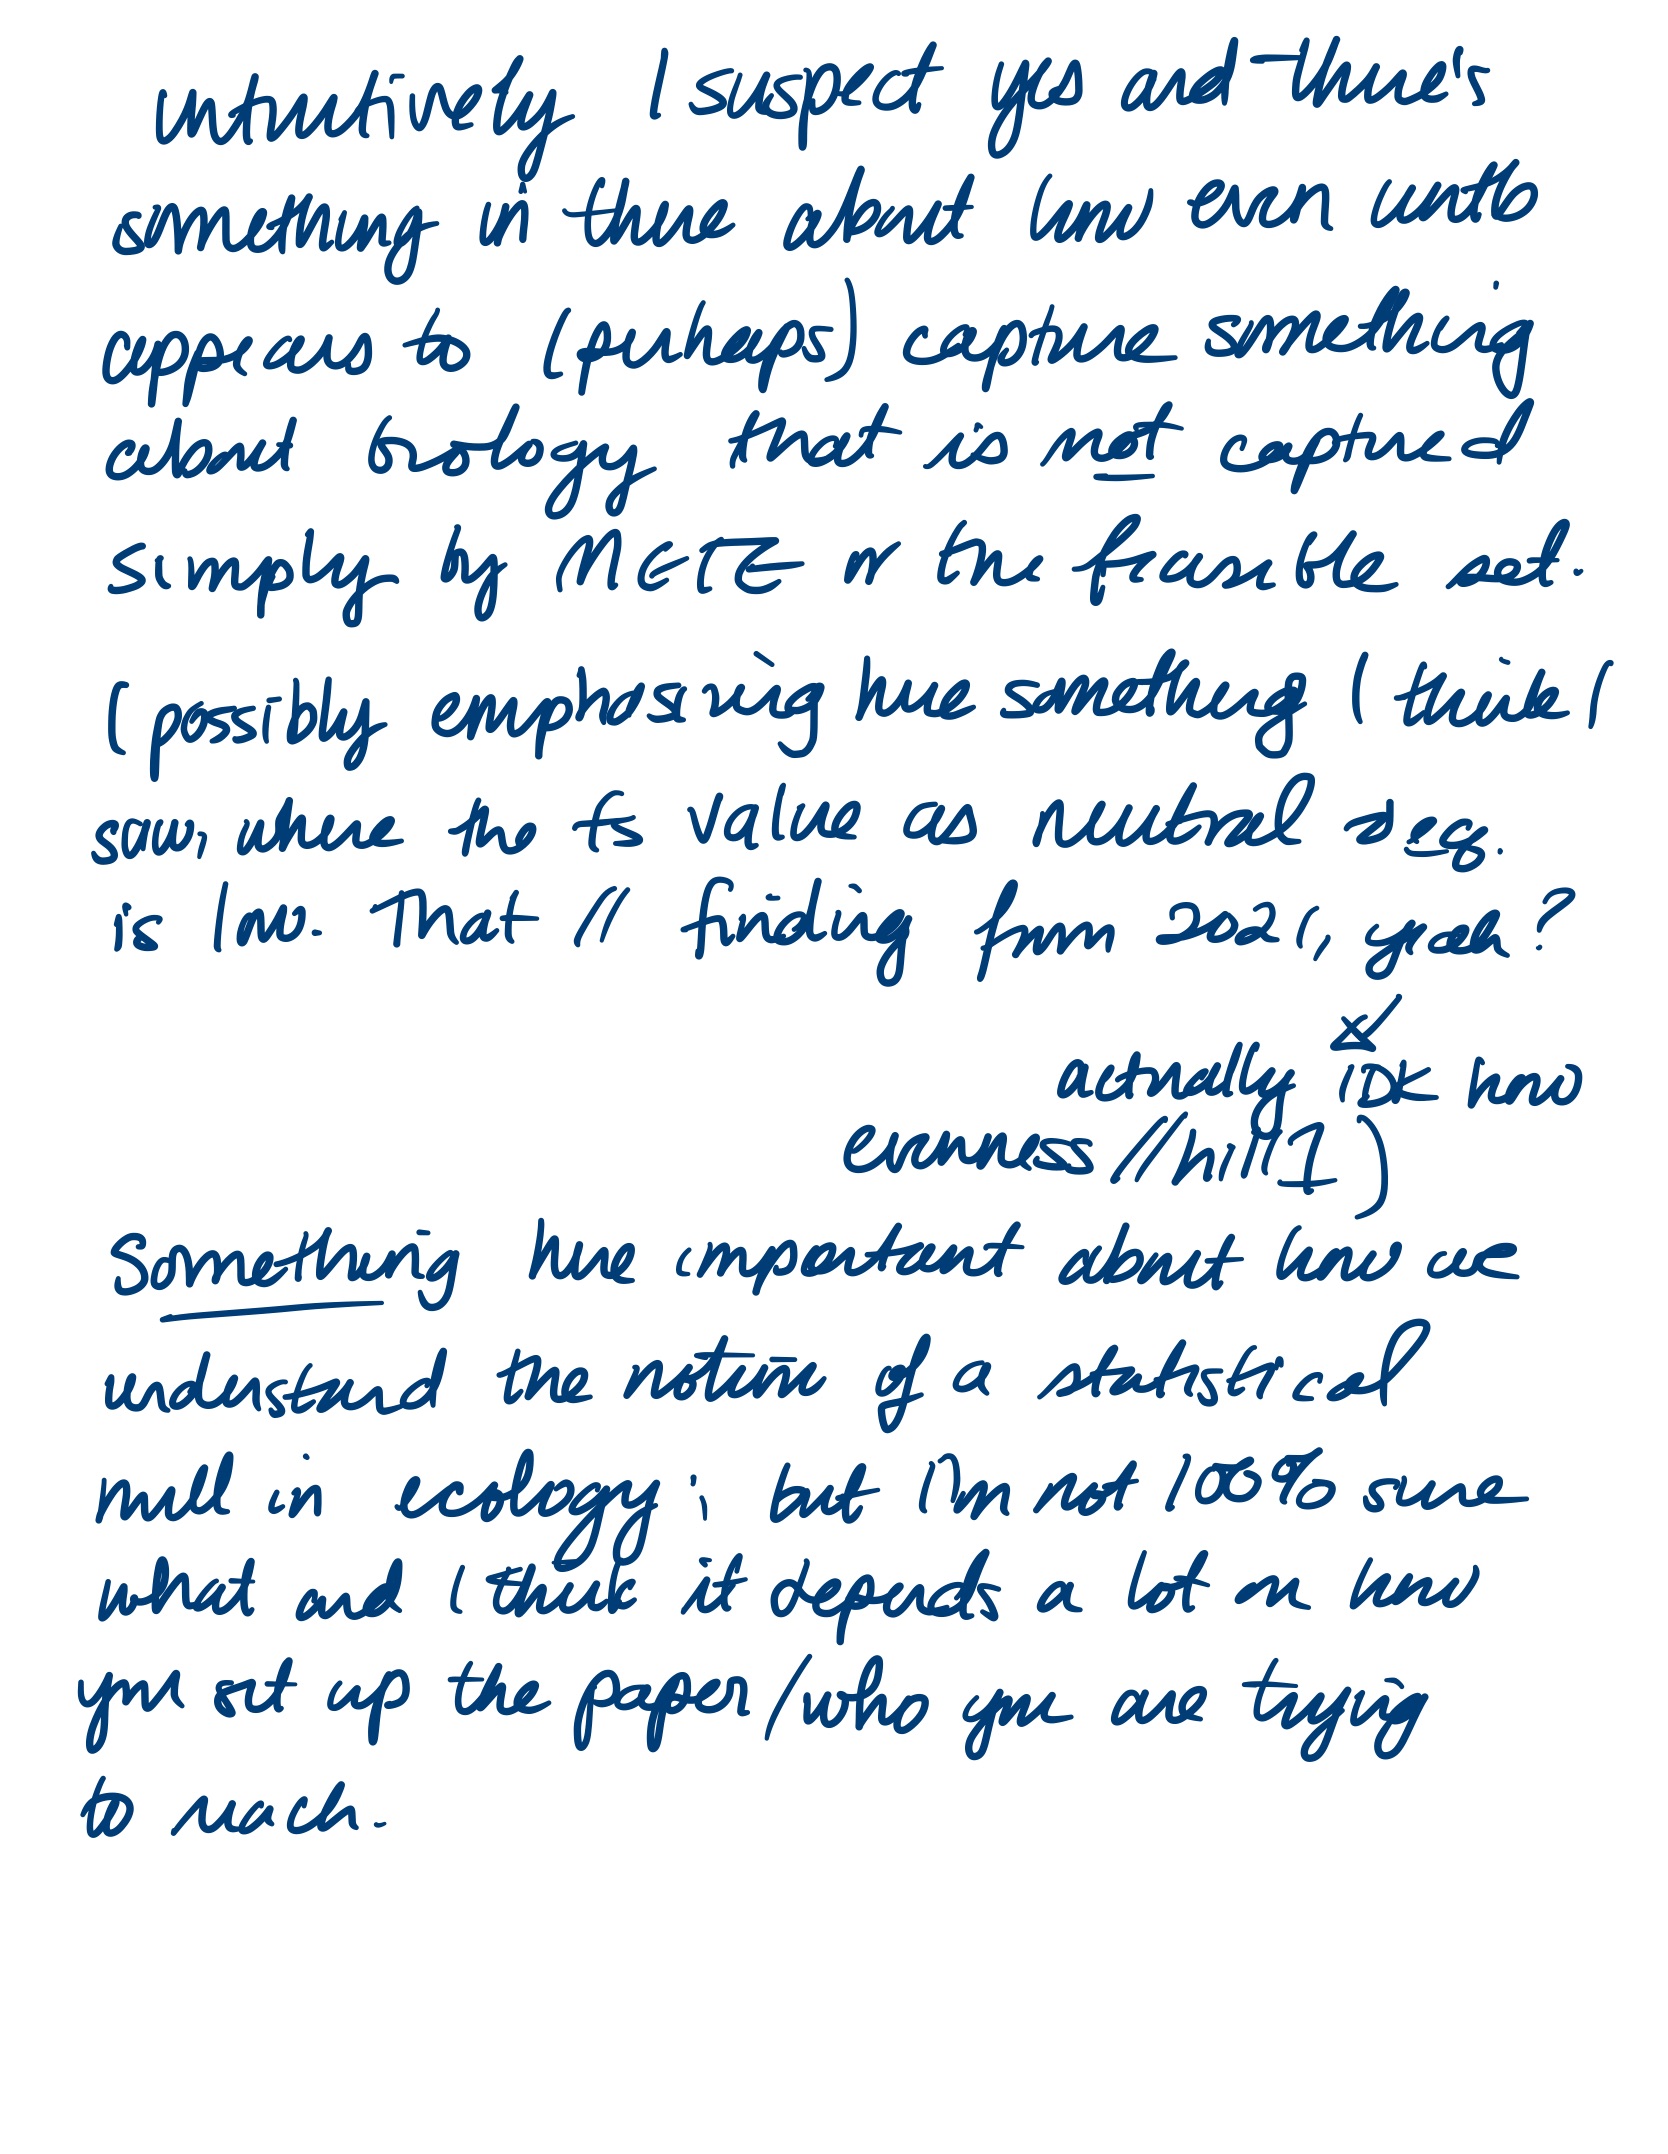 intuitively I suspect yes and there's
something in there about how even untb
appears to (perhaps) capture something
about biology that is not captured
simply by METE or the feasible set.
(possibly emphasizing here something I think I
saw, where the fs value as neutral deq.
is low. That // finding from 2021, yeah?
actually IDK how
evenness // hill1)
Something here important about how we
understand the notion of a statistical
null in ecology; but I'm not 100% sure
what and I think it depends a lot on how
you set up the paper/who you are trying
to reach.